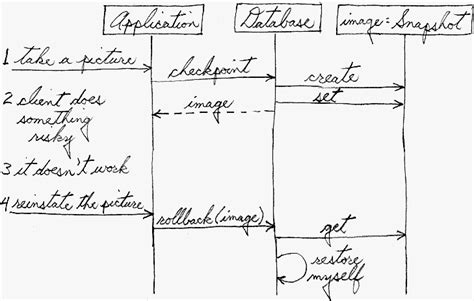 Application
Database
image: Snapshot
1 take a picture
checkpoint
create
set
image
2 client does
something
risky
3 it doesn't work
4 reinstate the picture
rollback(image)
get
restore
myself